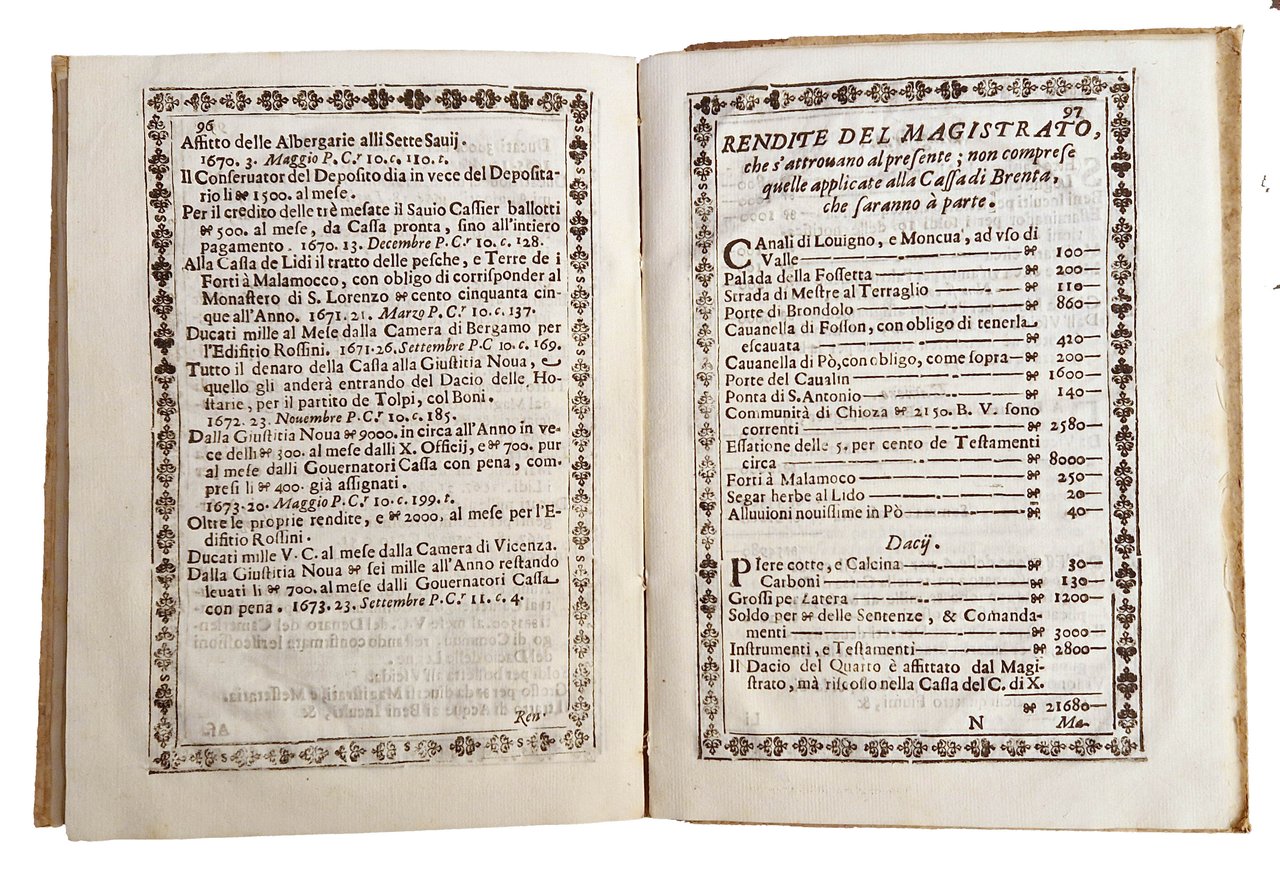 96
Affitto delle Albergarie alli Sette Sauij.
1670. 3. Maggio P. C.r 10. c. 110. t.
Il Conseruator del Deposito dia in vece del Deposita-
rio li ₯ 1500. al mese.
Per il credito delle trè mesate il Sauio Cassier ballotti
₯ 500. al mese, da Cassa pronta, sino all'intiero
pagamento. 1670. 13. Decembre P. C.r 10. c. 128.
Alla Cassa de Lidi il tratto delle pesche, e Terre de i
Forti à Malamocco, con obligo di corrisponder al
Monastero di S. Lorenzo ₯ cento cinquanta cin-
que all'Anno. 1671. 21. Marzo P. C.r 10. c. 137.
Ducati mille al Mese dalla Camera di Bergamo per
l'Edifitio Rossini. 1671. 26. Settembre P. C 10. c. 169.
Tutto il denaro della Cassa alla Giustitia Noua, e
quello gli anderà entrando del Dacio delle Ho-
starie, per il partito de Tolpi, col Boni.
1672. 23. Nouembre P. C.r 10. c. 185.
Dalla Giustitia Noua ₯ 9000. in circa all'Anno in ve-
ce delli ₯ 300. al mese dalli X. Officij, e ₯ 700. pur
al mese dalli Gouernatori Cassa con pena, com-
presi li ₯ 400. già assignati.
1673. 20. Maggio P. C.r 10. c. 199. t.
Oltre le proprie rendite, e ₯ 2000, al mese per l'E-
difitio Rossini.
Ducati mille V. C. al mese dalla Camera di Vicenza.
Dalla Giustitia Noua ₯ sei mille all'Anno restando
leuati li ₯ 700. al mese dalli Gouernatori Cassa
con pena. 1673. 23. Settembre P. C.r 11. c. 4.
Ren-
97
RENDITE DEL MAGISTRATO,
che s'attrouano al presente; non comprese
quelle applicate alla Cassa di Brenta,
che saranno à parte.
CAnali di Louigno, e Moncua, ad vso di
Valle — ₯ 100—
Palada della Fossetta — ₯ 200—
Strada di Mestre al Terraglio — ₯ 110—
Porte di Brondolo — ₯ 860—
Cauanella di Fosson, con obligo di tenerla
escauata — ₯ 420—
Cauanella di Pò, con obligo, come sopra— ₯ 200—
Porte del Caualin — ₯ 1600—
Ponta di S. Antonio — ₯ 140—
Communità di Chioza ₯ 2150. B. V. sono
correnti — ₯ 2580—
Essatione delle 5. per cento de Testamenti
circa — ₯ 8000—
Forti à Malamoco — ₯ 250—
Segar herbe al Lido — ₯ 20—
Alluuioni nouissime in Pò — ₯ 40—
Dacij.
PIere cotte, e Calcina — ₯ 30—
Carboni — ₯ 130—
Grossi per Latera — ₯ 1200—
Soldo per ₯ delle Sentenze, & Comanda-
menti — ₯ 3000—
Instrumenti, e Testamenti — ₯ 2800—
Il Dacio del Quarto è affittato dal Magi-
strato, mà riscosso nella Cassa del C. di X.
₯ 21680—
N Ma-